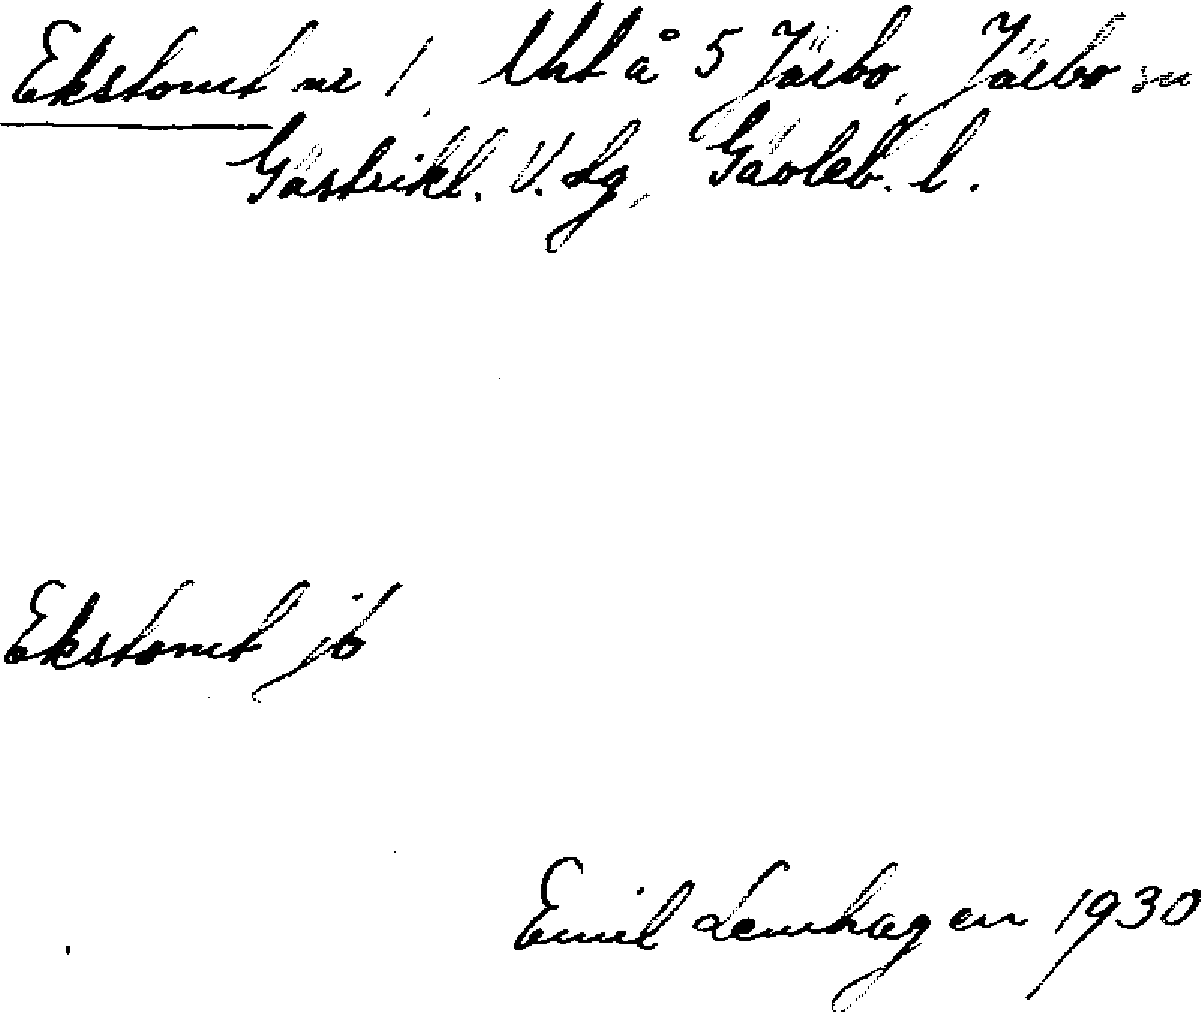 Ekstomt nr 1, Utt å 5 Järbo, Järbo sn
Gästrikl. V. dg, Gävleb. l.
Ekstomt jb
Emil Lenhagen 1930